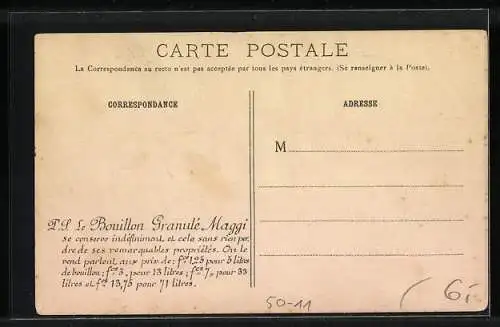 CARTE POSTALE
La Correspondance au recto n'est pas acceptée par tous les pays étrangers. (Se renseigner à la Poste).
CORRESPONDANCE
ADRESSE
M
P.S. Le Bouillon Granulé Maggi
se conserve indéfiniment et cela sans rien per-
dre de ses remarquables propriétés. On le
vend partout aux prix de: fcs 1,25 pour 5 litres
de bouillon; fcs 3, pour 13 litres; fcs 7, pour 33
litres et fcs 13,75 pour 71 litres.
50-11